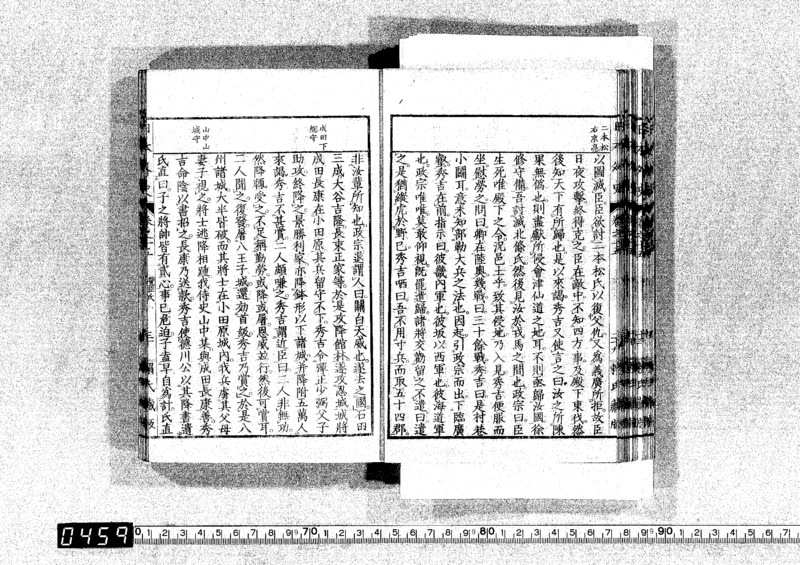 二本松
右京亮
以圖滅臣臣欲討二本松氏以復父仇又爲義廣所拒故臣
日夜攻擊終得克之臣在敵中不知四方事及殿下東伐然
後知天下有所歸也是以來謁秀吉又使言之曰汝之所陳
果無僞也則盡獻所侵會津仙道之地耳不則亟歸汝國徐
修守備吾討滅北條氏然後見汝於戎馬之間也政宗曰臣
生死唯殿下之命況邑土乎致其侵地乃入見秀吉便服而
坐慰勞之問曰卿在陸奧幾戰曰三十餘戰秀吉曰是村巷
小鬪耳意未知部勒大兵之法也因起引政宗而出下臨廣
壑秀吉在前指示曰彼畿內軍也彼坂以西軍也彼海道軍
也政宗唯唯莫敢仰視既罷遣歸諸將交勸留之不遣曰遣
之是猶縱虎於野已秀吉哂曰吾不用寸兵而取五十四郡
非汝輩所知也政宗退謂人曰關白天威也遂去之國石田
三成大谷吉隆長束正家等於是攻降館林遂攻忍城城將
成田下
總守
成田長康在小田原其兵留守不下秀吉令彈正少弼父子
助攻終降之景勝利家亦降鉢形以下諸城并降附五萬人
來謁秀吉不甚賞二人頗嗛之秀吉謂近臣曰二人非無功
然降輒受之不足稱勤勞或降或屠恩威並行然後可賞耳
二人聞之復發屠八王子城還効首級秀吉乃賞之於是八
州諸城大半皆破而其將士在小田原城內我兵虜其父母
山中山
城守
妻子視之將士逃降相踵我侍史山中某與成田長康善秀
吉命陰以書招之長康乃送款秀吉使德川公以其降書遺
氏直曰子之將帥皆有貳心事已危迫子盍早自爲計氏直
0459